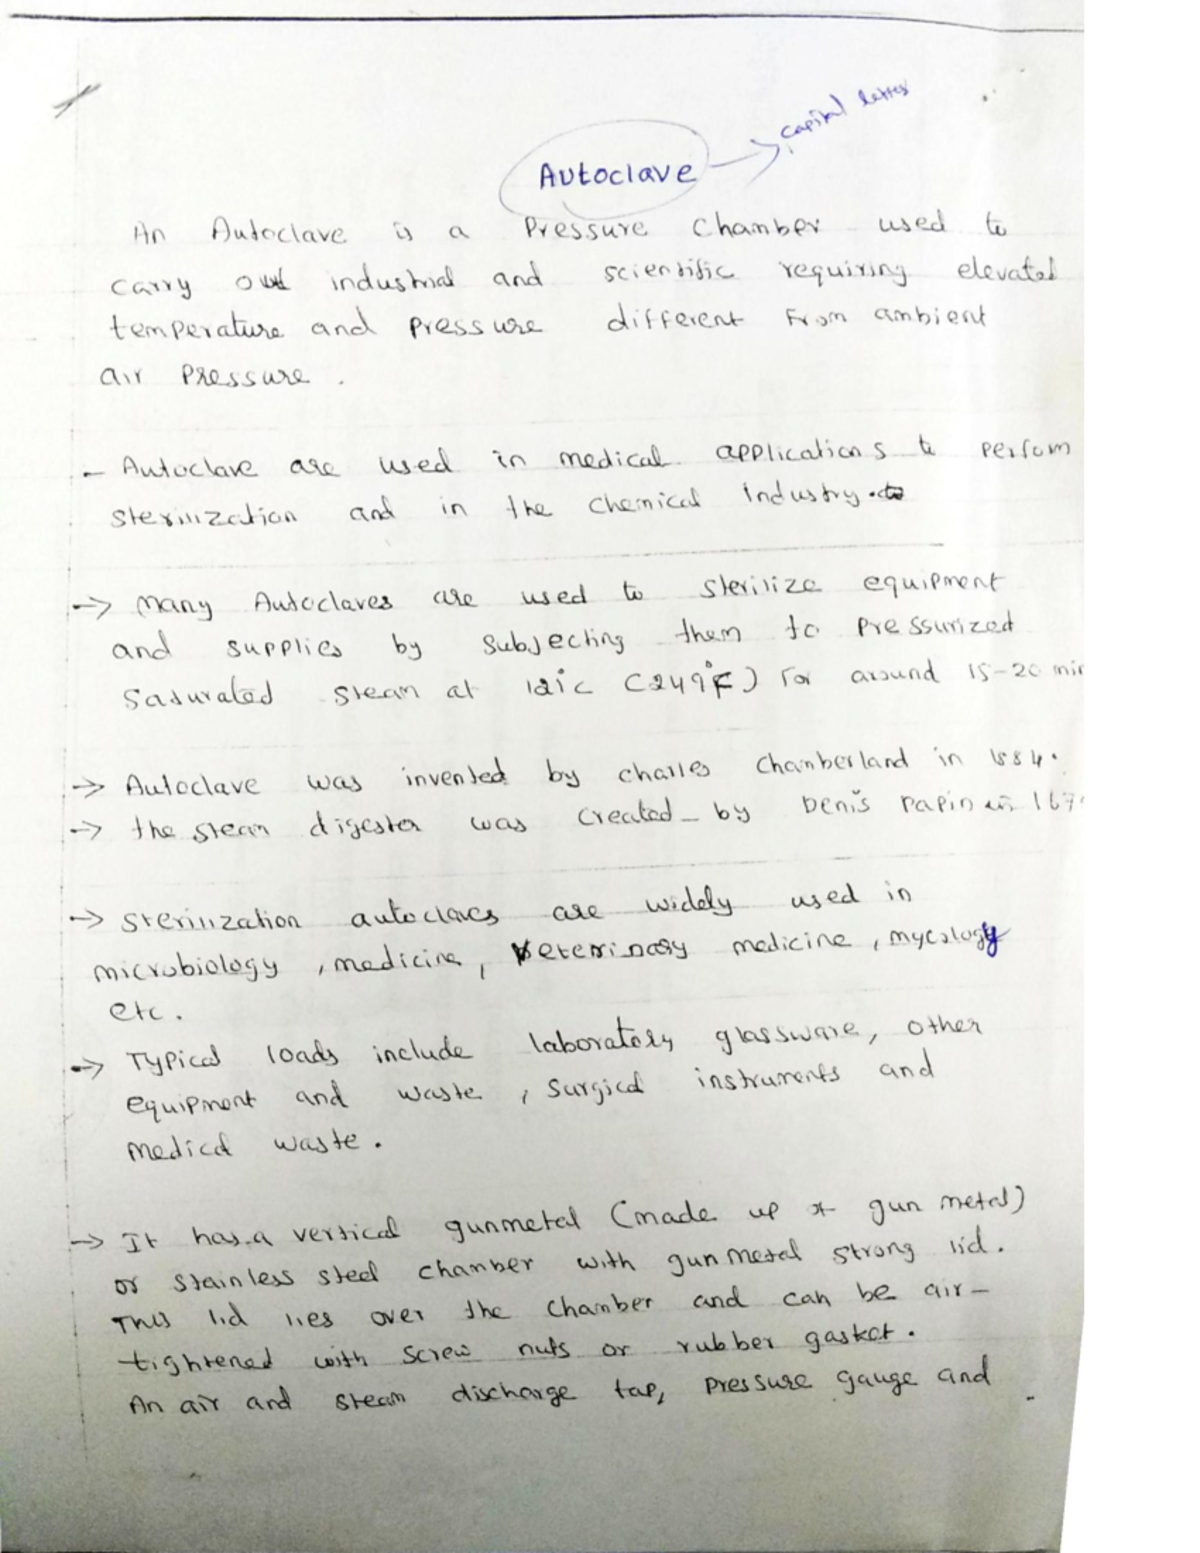 capital letter
Autoclave
An Autoclave is a Pressure Chamber used to
carry out industrial and scientific requiring elevated
temperature and pressure different from ambient
air Pressure.
- Autoclave are used in medical applications to perform
sterilization and in the chemical industry.
→ Many Autoclaves are used to sterilize equipment
and supplies by subjecting them to pressurized
Saturated steam at 121°C (249°F) for around 15-20 min
→ Autoclave was invented by charles Chamberland in 1884.
→ the steam digester was created by Denis Papin in 167
→ sterilization autoclaves are widely used in
microbiology, medicine, veterinary medicine, mycology
etc.
→ Typical loads include laboratory glassware, other
equipment and waste, surgical instruments and
medical waste.
→ It has a vertical gunmetal (made up of gun metal)
or stainless steel chamber with gunmetal strong lid.
This lid lies over the chamber and can be air-
tightened with screw nuts or rubber gasket.
An air and steam discharge tap, pressure gauge and